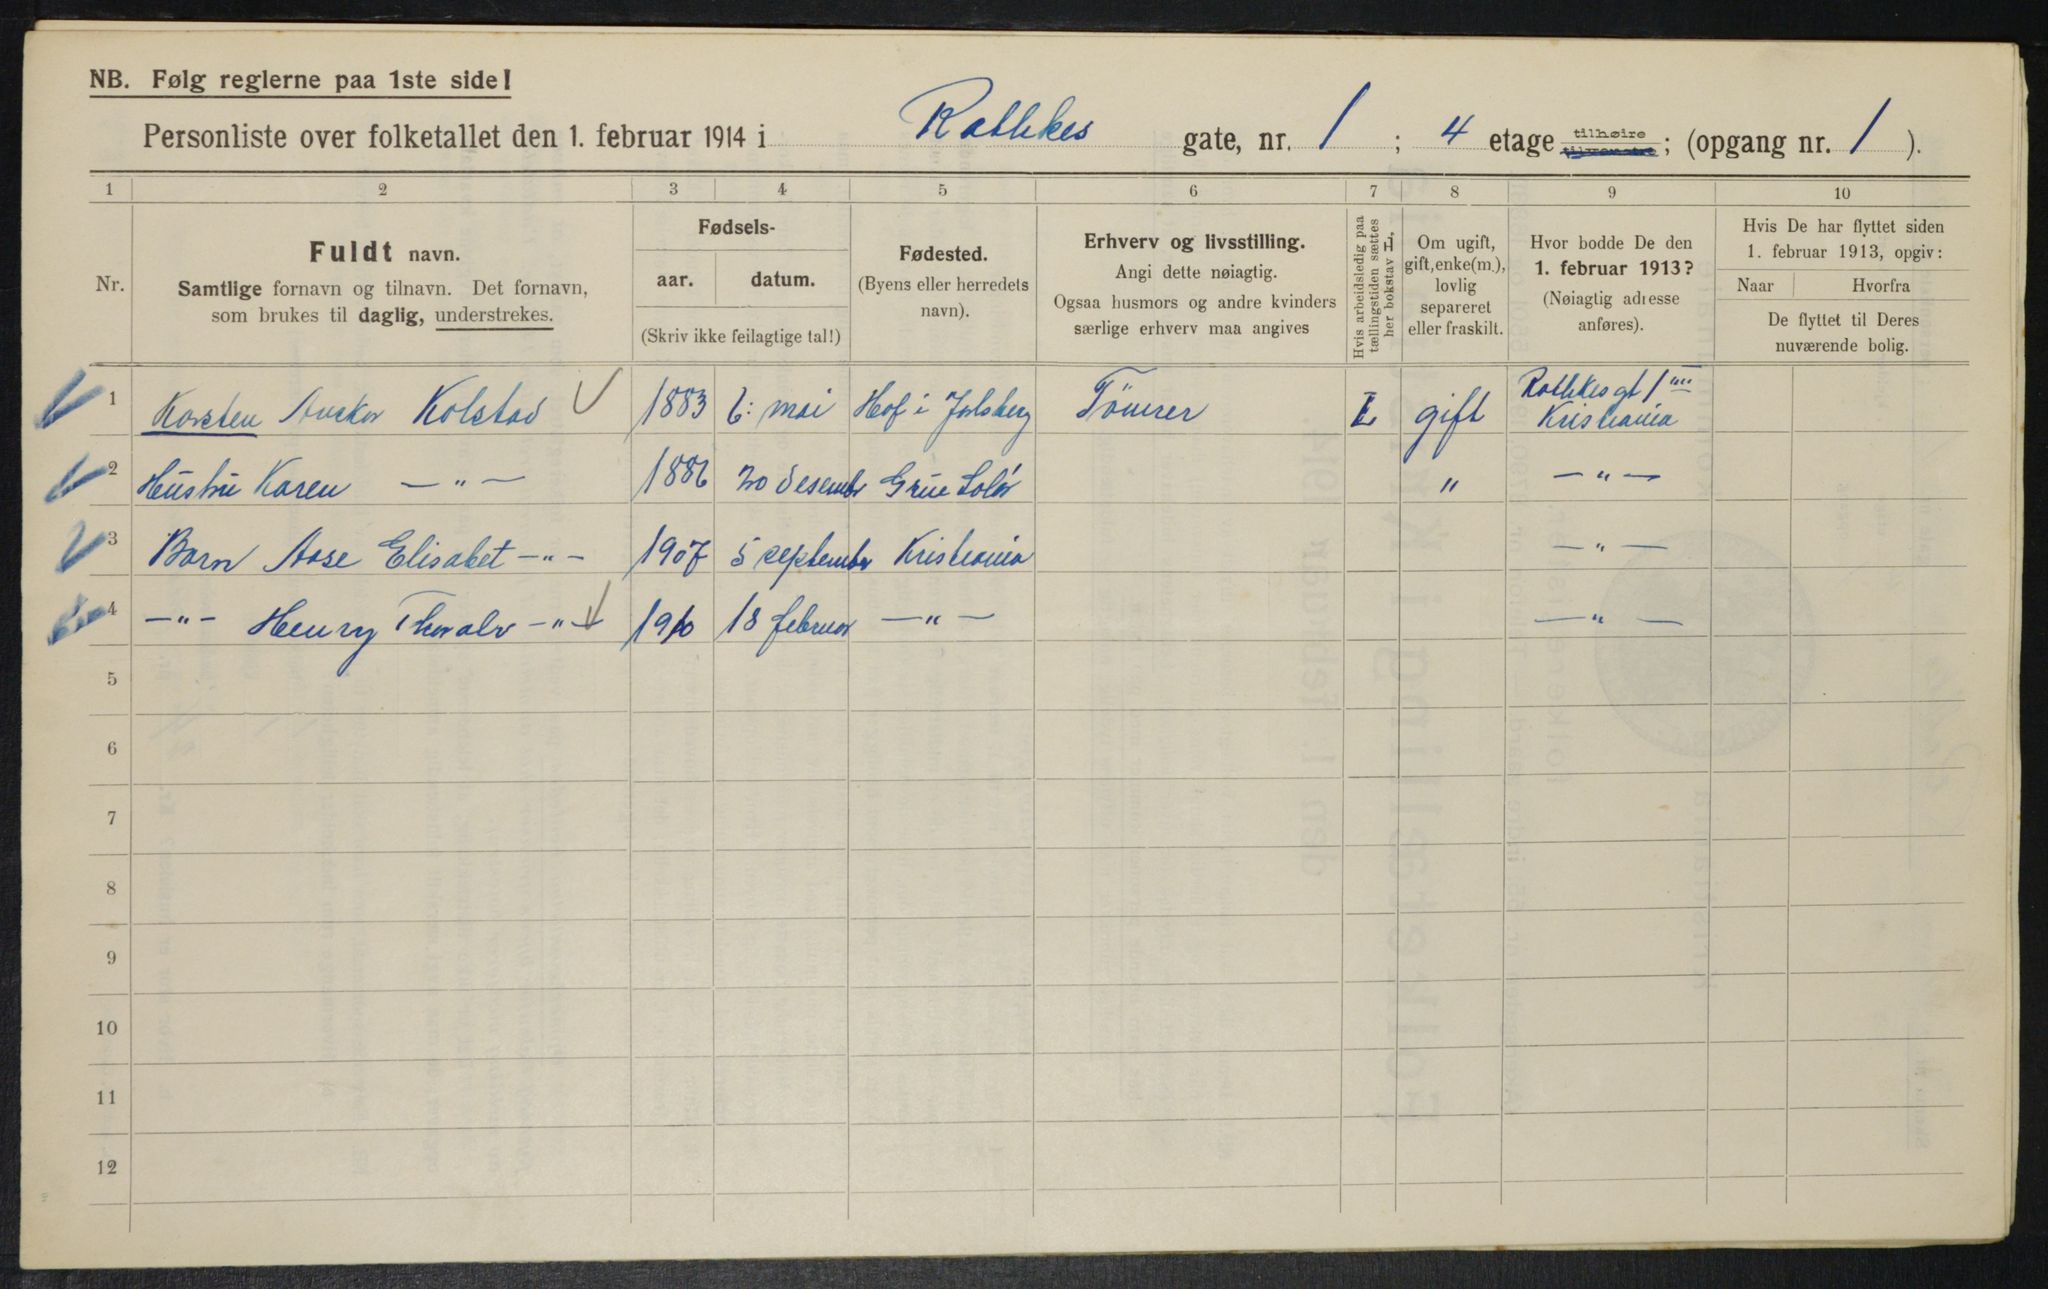 NB. Følg reglerne paa 1ste side!
Personliste over folketallet den 1. februar 1914 i Rathkes gate, nr. 1 ; 4 etage tilhøire ; (opgang nr. 1 ).
1 2 3 4 5 6 7 8 9 10
Nr.
Fuldt navn.
Samtlige fornavn og tilnavn. Det fornavn,
som brukes til daglig, understrekes.
Fødsels-
aar. datum.
(Skriv ikke feilagtige tal!)
Fødested.
(Byens eller herredets
navn).
Erhverv og livsstilling.
Angi dette nøiagtig.
Ogsaa husmors og andre kvinders
særlige erhverv maa angives
Hvis arbeidsledig paa
tællingstiden sættes
her bokstav L.
Om ugift,
gift, enke(m.),
lovlig
separeret
eller fraskilt.
Hvor bodde De den
1. februar 1913?
(Nøiagtig adresse
anføres).
Hvis De har flyttet siden
1. februar 1913, opgiv:
Naar Hvorfra
De flyttet til Deres
nuværende bolig.
1 Karsten Kolstad 1883 6: mai Hof i Jarlsberg Tömrer L gift Rathkes gt 1 Kristiania
2 Hustru Karen — " — 1886 20 desember Grue Solör " — " —
3 Barn Aase Elisabet — " — 1907 5 september Kristiania — " —
4 — " — Henry Thoralv — " — 1910 18 februar — " — — " —
5
6
7
8
9
10
11
12